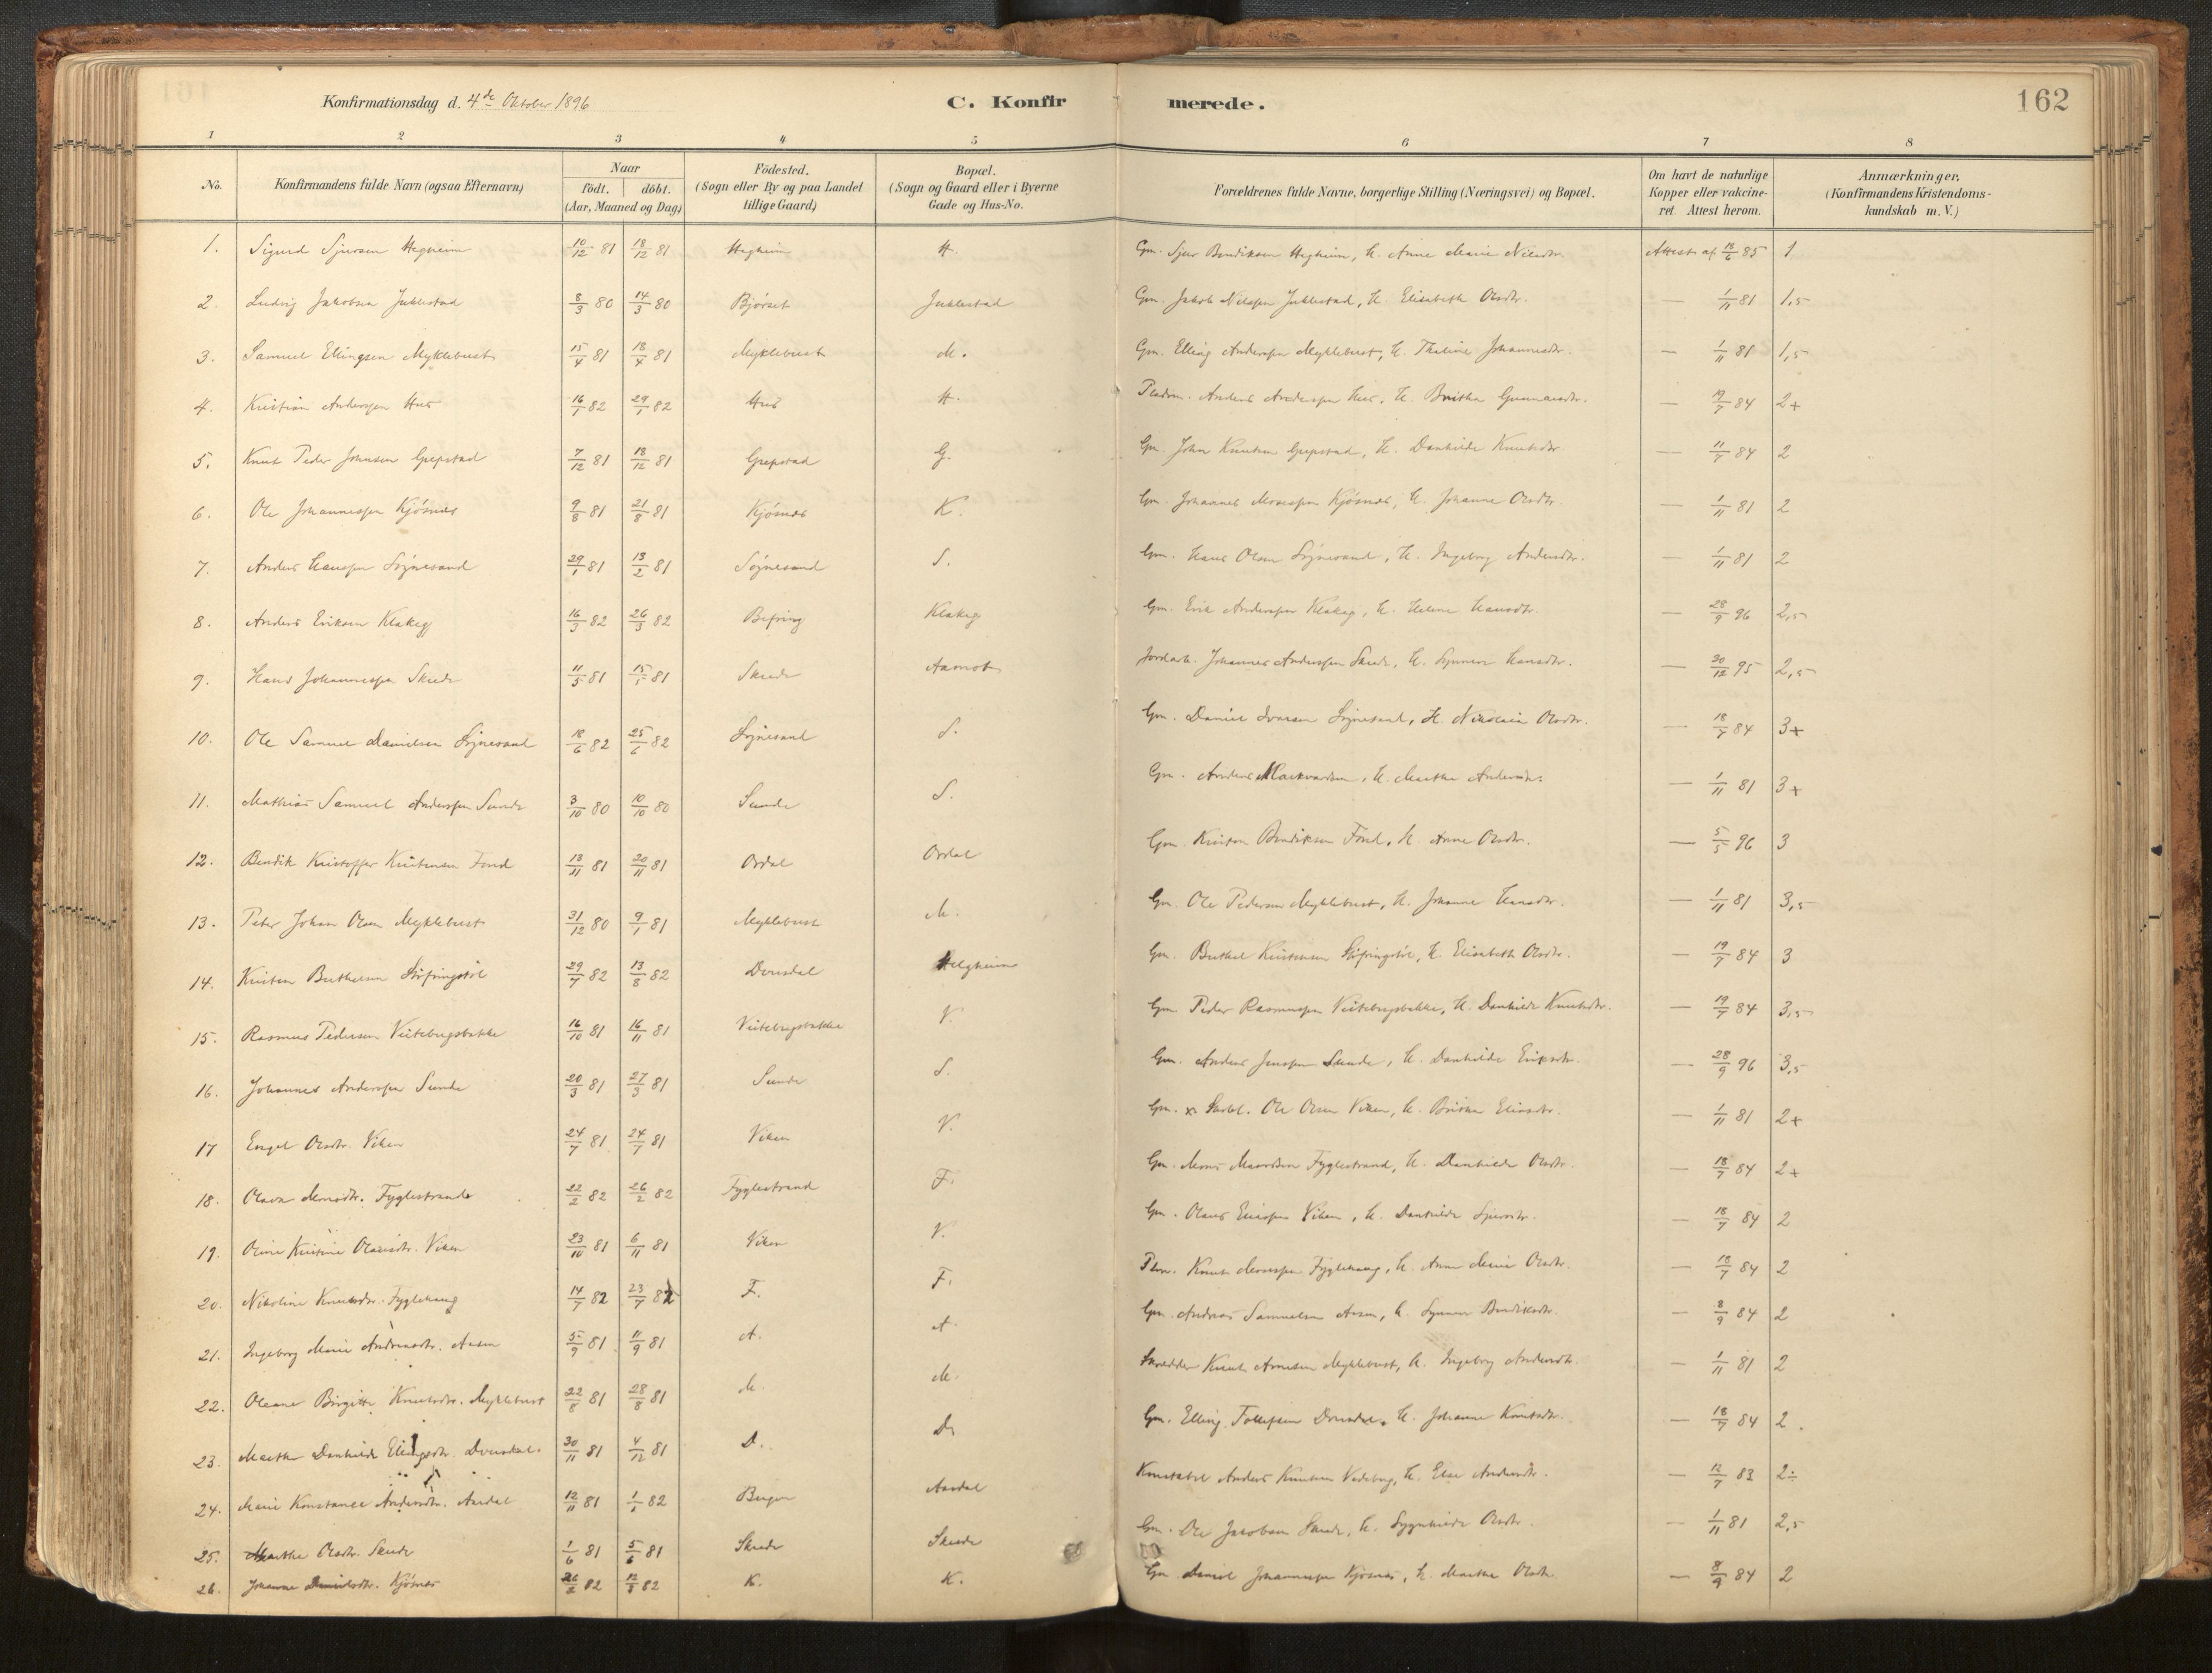 Konfirmationsdag d. 4de Oktober 1896 C. Konfirmerede. 162
1 2 3 4 5 6 7 8
No. Konfirmandens fulde Navn (ogsaa Efternavn) Naar födt. döbt. (Aar, Maaned og Dag) Födested. (Sogn eller By og paa Landet tillige Gaard) Bopæl. (Sogn og Gaard eller i Byerne Gade og Hus-No. Forældrenes fulde Navne, borgerlige Stilling (Næringsvei) og Bopæl. Om havt de naturlige Kopper eller vakcineret. Attest herom. Anmærkninger, (Konfirmandens Kristendomskundskab m. V.)
1. Sigurd Sjursen Hegheim 10/12 81 18/12 81 Hegheim H. Gm. Sjur Bendiksen Hegheim, H. Anne Marie Nilsdtr. Attest af 18/6 85 1
2. Ludvig Jakobsen Juklestad 8/3 80 14/3 80 Bjørset Juklestad Gm. Jakob Nilssen Juklestad, H. Elisabeth Olsdtr. — 1/11 81 1,5
3. Samuel Ellingsen Myklebust 15/4 81 18/4 81 Myklebust M. Gm. Elling Anderssen Myklebust, H. Thaline Johannesdtr. — 1/11 81 1,5
4. Kristian Anderssen Hus 16/1 82 29/1 82 Hus H. Pladsm. Anders Anderssen Hus, H. Britha Gunnarsdtr. — 19/7 84 2+
5. Knut Peder Johnsen Grepstad 7/12 81 18/12 81 Grepstad G. Gm. John Knutsen Grepstad, H. Danhilde Knutsdtr. — 11/7 84 2
6. Ole Johannessen Kjøsnæs 9/8 81 21/8 81 Kjøsnæs K. Gm. Johannes Monssen Kjøsnæs, H. Johanne Olsdtr. — 1/11 81 2
7. Anders Hanssen Søgnesand 29/1 81 13/2 81 Søgnesand S. Gm. Hans Olsen Søgnesand, H. Ingeborg Andersdtr. — 1/11 81 2
8. Anders Eriksen Klakeg 16/3 82 26/3 82 Befring Klakeg Gm. Erik Anderssen Klakeg, H. Helene Hansdtr. — 28/9 96 2,5
9. Hans Johannessen Skrede 11/5 81 15/5 81 Skrede Aamot Jordarb. Johannes Anderssen Skrede, H. Synneve Hansdtr. — 30/12 95 2,5
10. Ole Samuel Danielsen Søgnesand 18/6 82 25/6 82 Søgnesand S. Gm. Daniel Ivarsen Søgnesand, H. Nikolaia Olsdtr. — 18/7 84 3+
11. Mathias Samuel Anderssen Sunde 3/10 80 10/10 80 Sunde S. Gm. Anders Markvardsen, H. Marthe Andersdtr. — 1/11 81 3+
12. Bendik Kristoffer Kristensen Fond 13/11 81 20/11 81 Ordal Ordal Gm. Kristen Bendiksen Fond, H. Anne Olsdtr. — 5/5 96 3
13. Peter Johan Olsen Myklebust 31/12 80 9/1 81 Myklebust M. Gm. Ole Pedersen Myklebust, H. Johanne Hansdtr. — 1/11 81 3,5
14. Kristen Berthelsen 29/7 82 13/8 82 Dvergsdal Helgheim Gm. Berthel Kristensen H. Elisabeth Olsdtr. — 19/7 84 3
15. Rasmus Pedersen Veitebergsbakke 16/10 81 16/11 81 Veitebergsbakke V. Gm. Peder Rasmussen Veitebergsbakke, H. Danhilde Knutsdtr. — 19/7 84 3,5
16. Johannes Anderssen Sunde 20/3 81 27/3 81 Sunde S. Gm. Anders Jenssen Sunde, H. Danhilde Eriksdtr. — 28/9 96 3,5
17 Engel Olsdtr. Viken 24/7 81 24/7 81 Viken V. Gm. x Ole Olsen Viken, H. Britha Eliasdtr. — 1/11 81 2+
18. Olava Monsdtr. Fyglestrand 22/2 82 26/2 82 Fyglestrand F. Gm. Mons Monssen Fyglestrand, H. Danhilde Olsdtr. — 18/7 84 2+
19. Oline Kristine Olausdtr. Viken 23/10 81 6/11 81 Viken V. Gm. Olaus Viken, H. Danhilde Sjursdtr. — 18/7 84 2
20. Nikoline Knutsdtr. Fyglehaug 14/7 82 23/7 82 F. F. Plm. Knut Monssen Fyglehaug, H. Anne Marie Olsdtr. — 18/7 84 2
21. Ingeborg Marie Andreasdtr. Aasen 5/9 81 11/9 81 A. A. Gm. Andreas Samuelsen Aasen, H. Synneve Bendiksdtr. — 8/9 84 2
22. Oleane Birgitte Knutsdtr. Myklebust 22/8 81 28/8 81 M. M. Skrædder Knut Arnesen Myklebust, H. Ingeborg Andersdtr. — 1/11 81 2
23. Marthe Danhilde Ellingsdtr. Dvergsdal. 30/11 81 4/12 81 D. D. Gm. Elling Tollefsen Dvergsdal, H. Johanne Knutsdtr. — 18/7 84 2.
24. Marie Konstance Andersdtr. Aardal 12/11 81 1/1 82 Bergen Aardal Konstabel Anders Knutsen H. Else Andersdtr. — 12/7 83 2÷
25. Marthe Olsdtr. Skrede 1/6 81 5/6 81 Skrede Skrede Gm. Ole Jakobsen Skrede, H. Olsdtr. — 1/11 81 2,5
26. Johanne Danielsdtr. Kjøsnæs 26/2 82 12/3 82 K. K. Gm Daniel Johannessen Kjøsnæs, H. Marthe Olsdtr. — 8/9 84 2